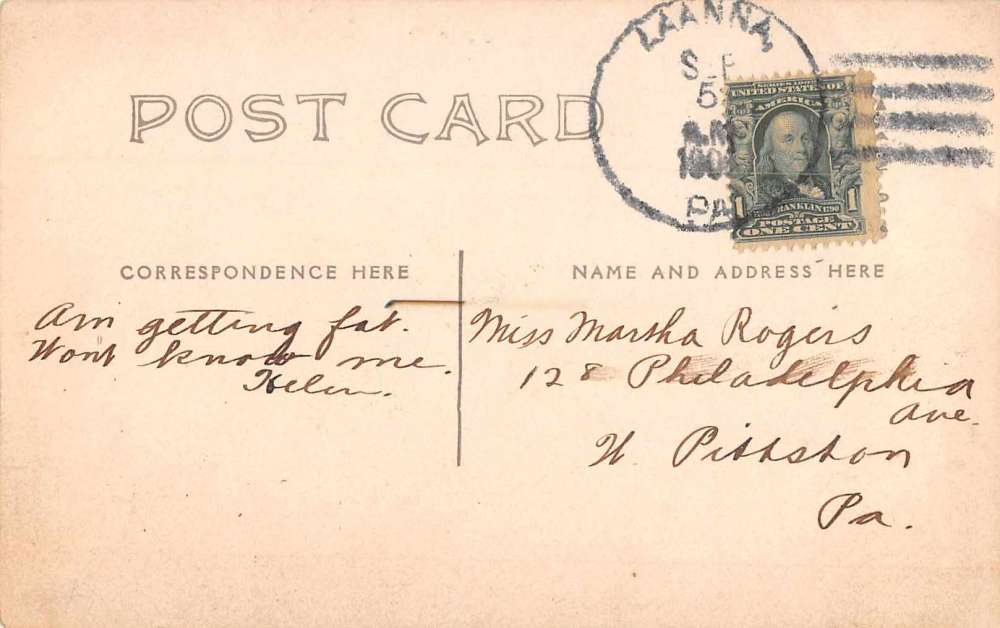 LAANNA,
SEP
5
AM
PA
SERIES 1902
UNITED STATES OF
AMERICA
1 FRANKLIN 1790 1
POSTAGE
ONE CENT
POST CARD
CORRESPONDENCE HERE
NAME AND ADDRESS HERE
Am getting fat.
Wont know me.
Helen.
Miss Martha Rogers
128 Philadelphia
Ave.
W. Pittston
Pa.